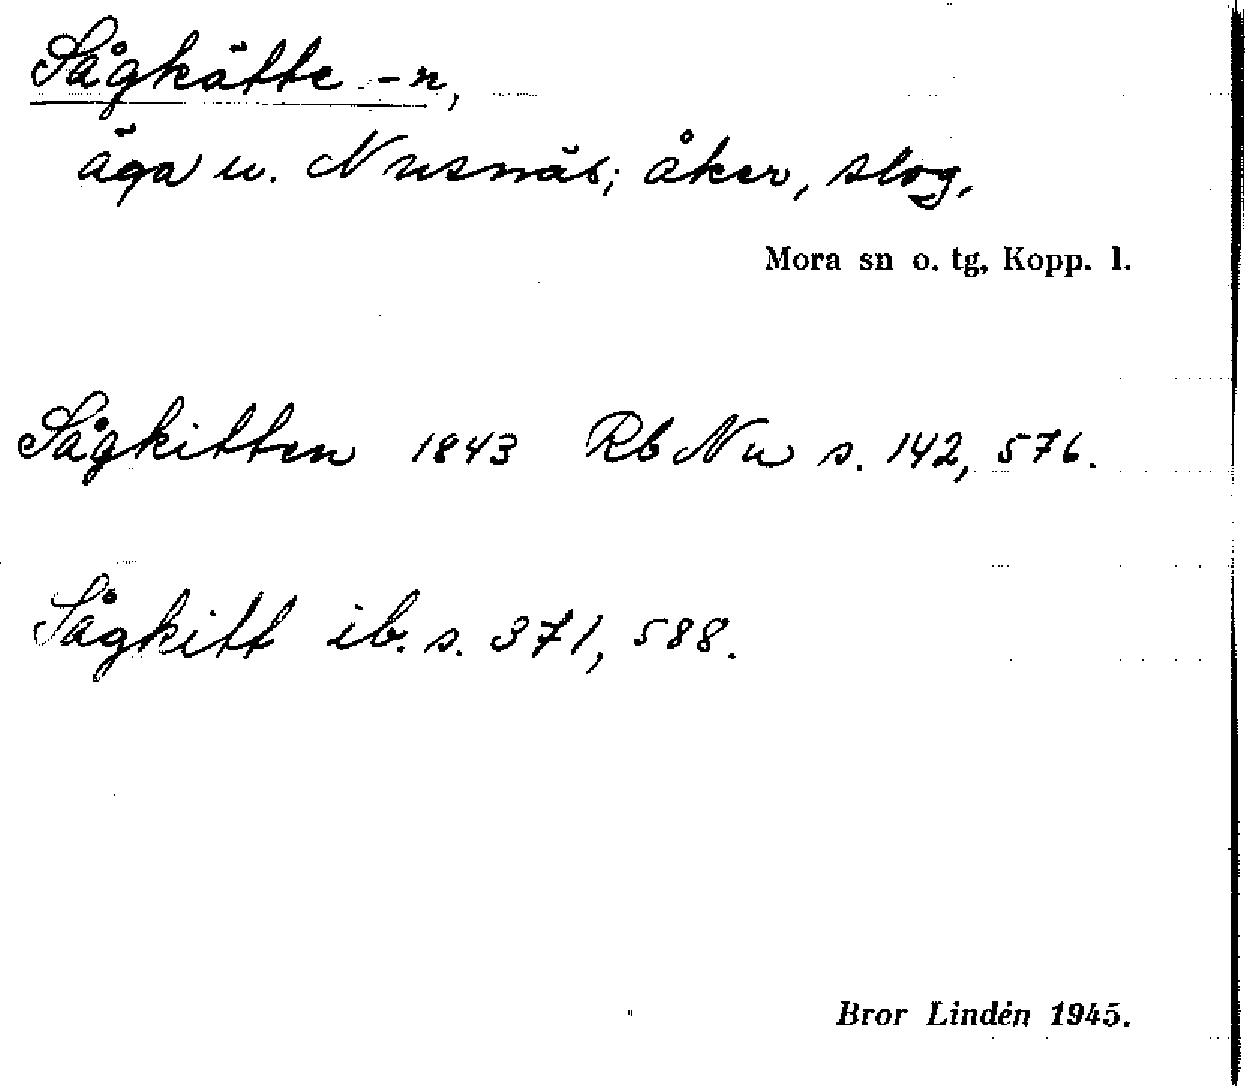 Sågkätte -n,
äga u. Nusnäs; åker, slog,
Mora sn o. tg, Kopp. l.
Sågkitten 1843 Rb Nu s. 142, 576.
Sågkitt ib. s. 371, 588.
Bror Lindén 1945.